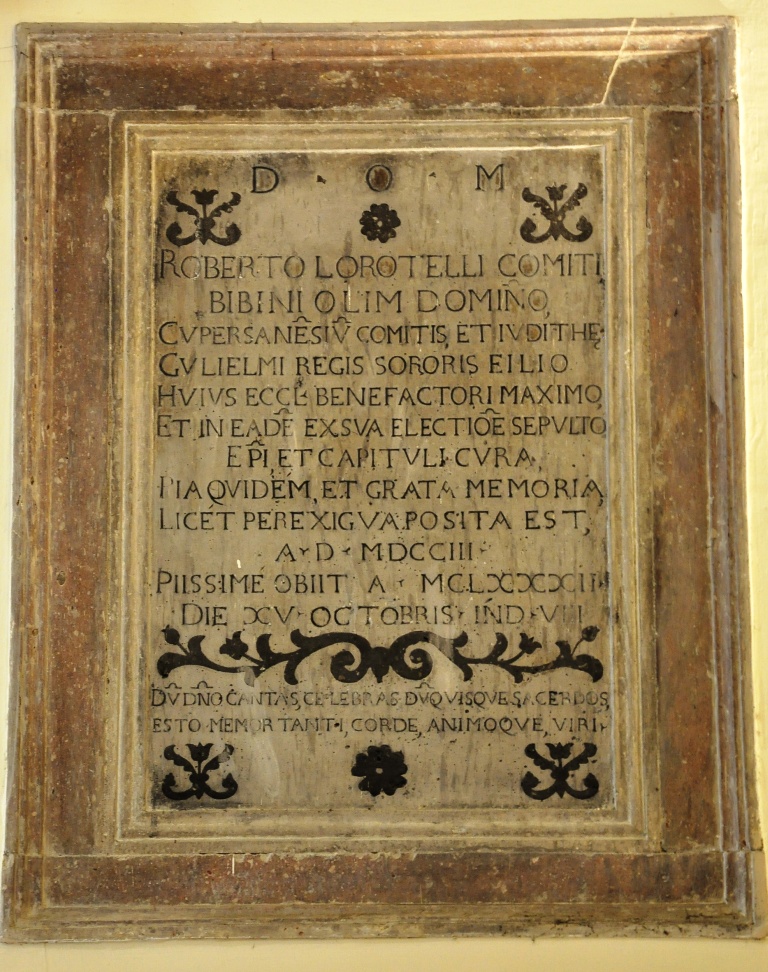 D · O · M
ROBERTO LOROTELLI COMITI
BIBINI OLIM DOMINO,
CVPERSANE̅SIV̅ COMITIS, ET IVDITHĘ
GVLIELMI REGIS SORORIS EILIO
HVIVS ECCL̅E BENEFACTORI MAXIMO,
ET IN EADE̅ EXSVA ELECTIOE̅ SEPVLTO
EP̅I, ET CAPITVLI CVRA,
PIA QVIDEM, ET GRATA MEMORIA,
LICET PEREXIGVA POSITA EST,
A · D · MDCCIII ·
PIISSIME OBIIT A · MCLXXXXII
DIE XV · OCTOBRIS · IND · VII
DV̅ DN̅O CANTAS, CELEBRAS DV̅ QVISQVE SACERDOS,
ESTO MEMOR TANTI, CORDE, ANIMOQVE, VIRI ·